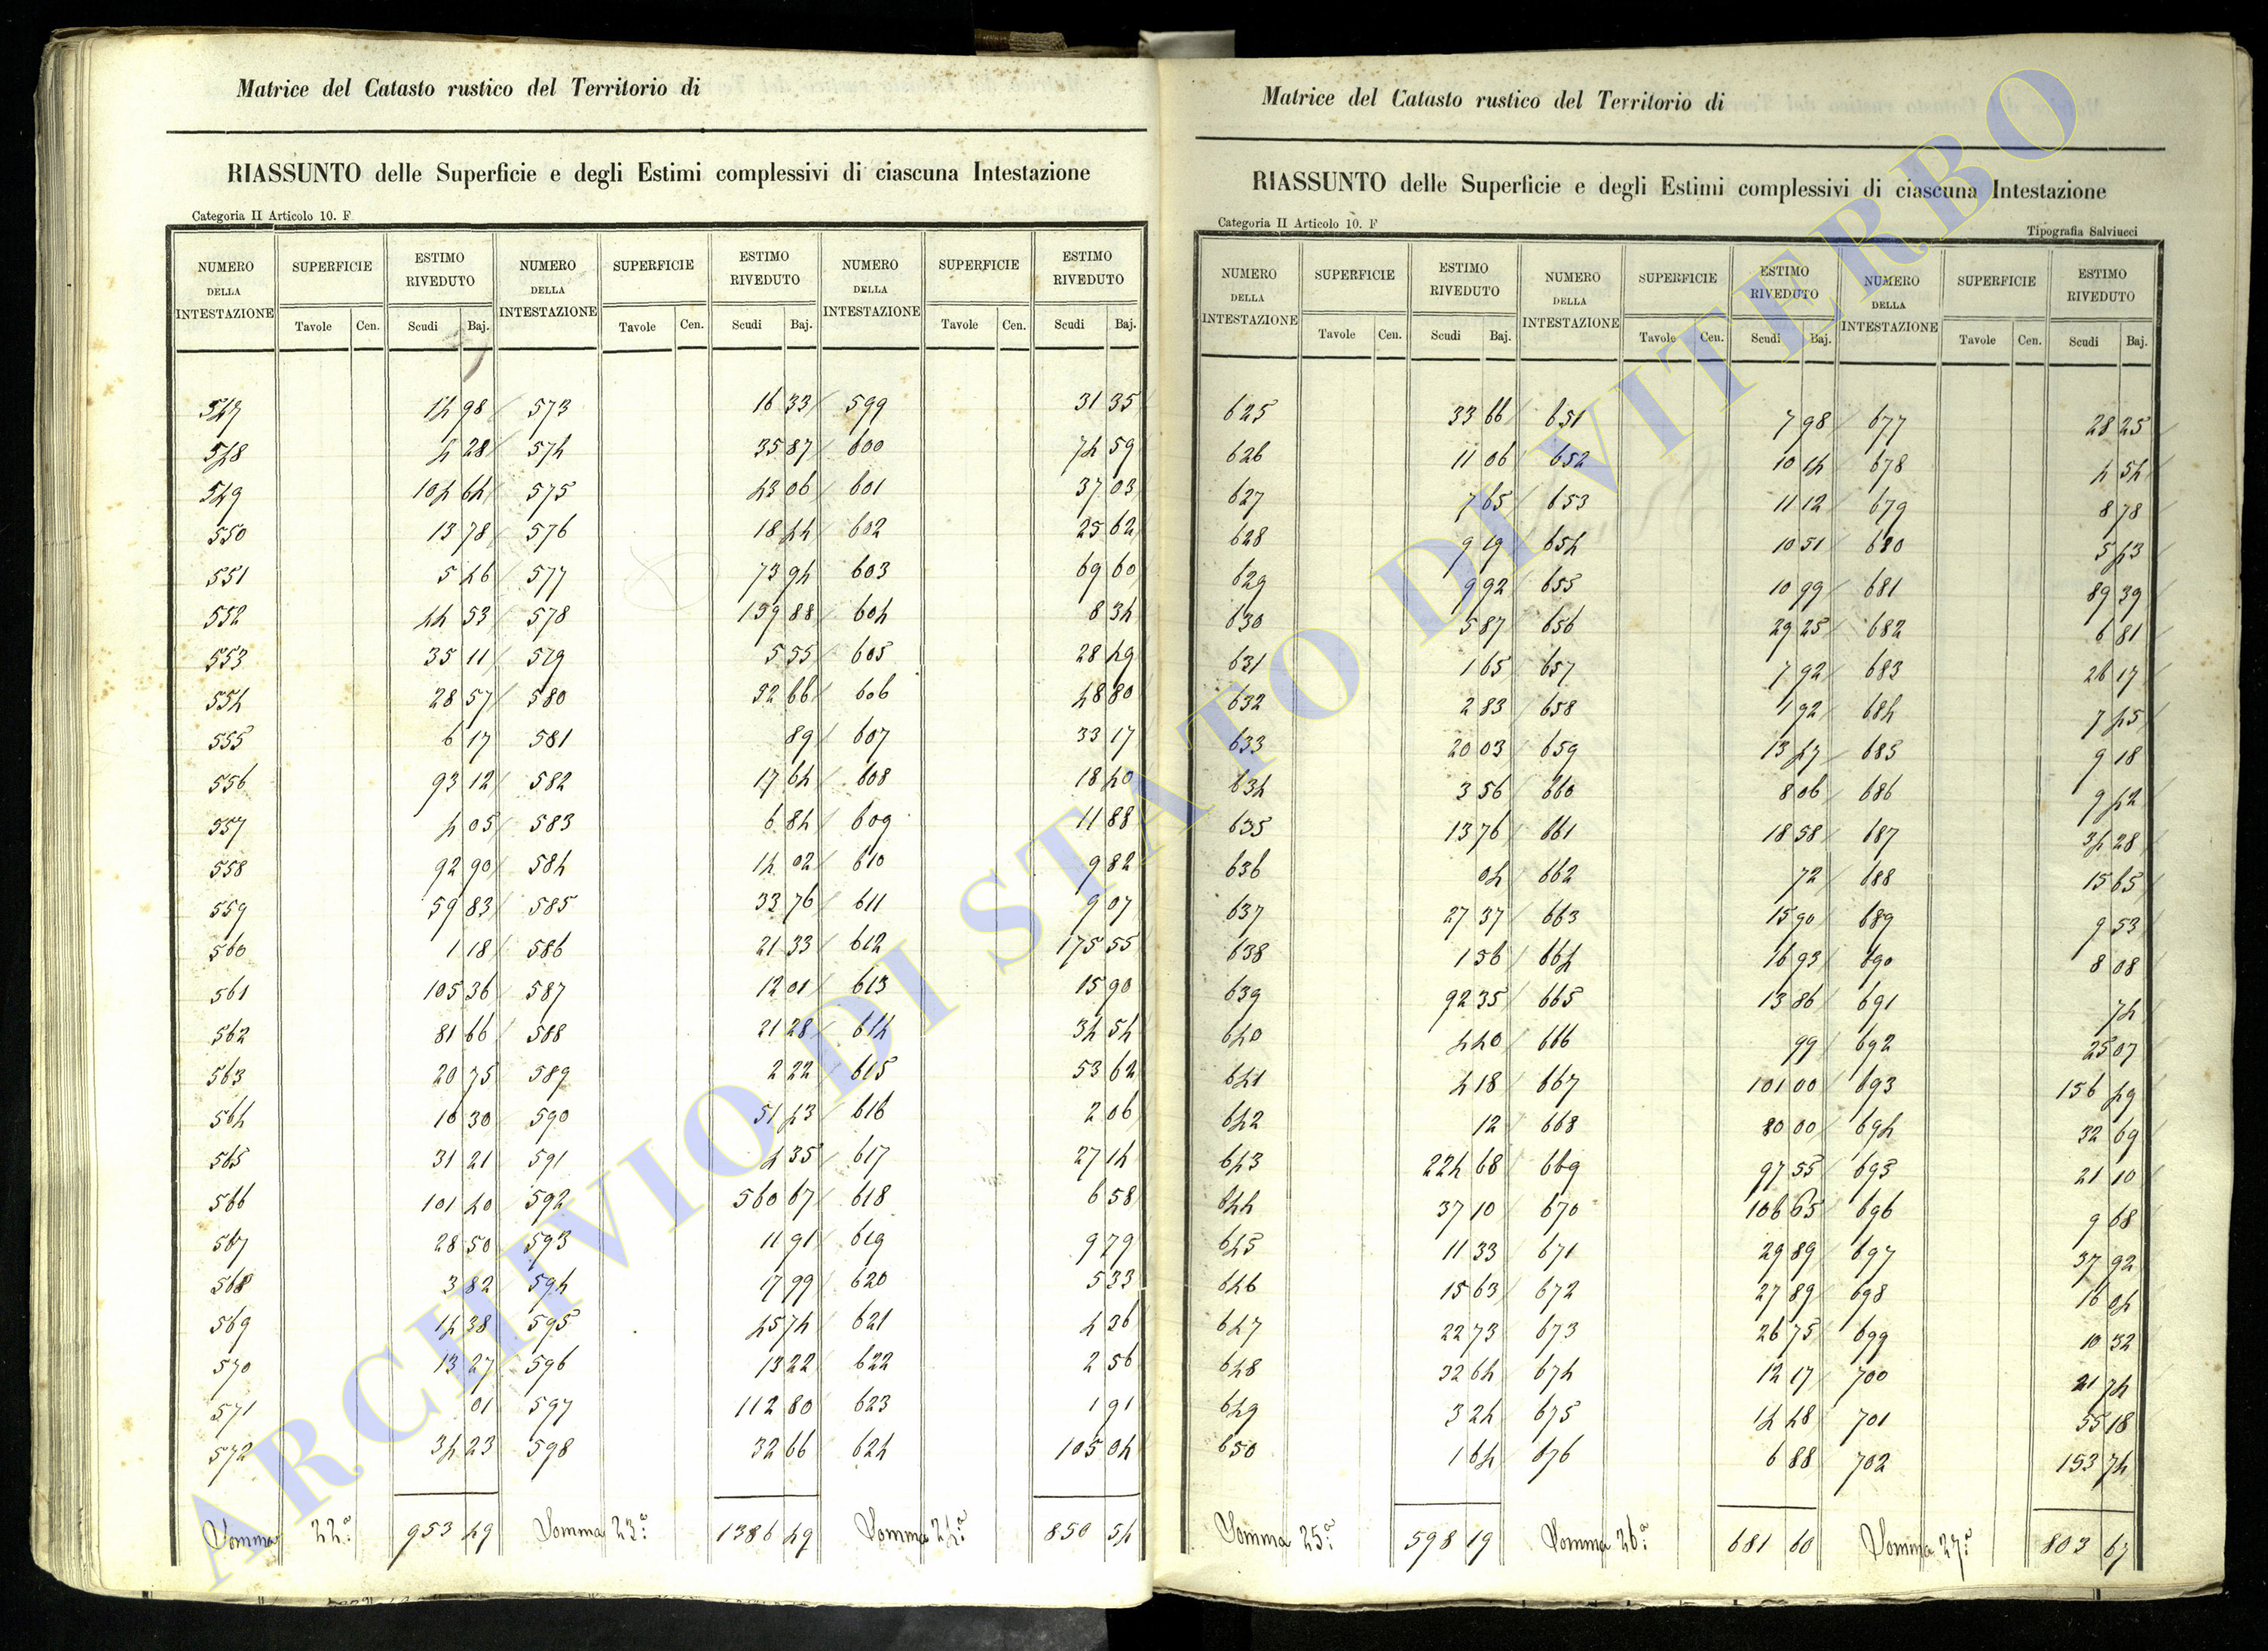 Matrice del Catasto rustico del Territorio di
RIASSUNTO delle Superficie e degli Estimi complessivi di ciascuna Intestazione
Categoria II Articolo 10. F
NUMERO DELLA INTESTAZIONE SUPERFICIE ESTIMO RIVEDUTO NUMERO DELLA INTESTAZIONE SUPERFICIE ESTIMO RIVEDUTO NUMERO DELLA INTESTAZIONE SUPERFICIE ESTIMO RIVEDUTO
Tavole Cen. Scudi Baj. Tavole Cen. Scudi Baj. Tavole Cen. Scudi Baj.
547 14 98 573 16 33 599 31 35
548 4 28 574 35 87 600 74 59
549 104 64 575 43 06 601 37 03
550 13 78 576 18 44 602 25 62
551 5 46 577 73 94 603 69 60
552 44 53 578 159 88 604 8 34
553 35 11 579 5 55 605 28 49
554 28 57 580 52 66 606 48 80
555 6 17 581 89 607 33 17
556 93 12 582 17 64 608 18 40
557 4 05 583 6 84 609 11 88
558 92 90 584 14 02 610 9 82
559 59 83 585 33 76 611 9 07
560 1 18 586 21 33 612 175 55
561 105 36 587 12 01 613 15 90
562 81 66 588 21 28 614 34 54
563 20 75 589 2 22 615 53 62
564 16 30 590 51 43 616 2 06
565 31 21 591 4 35 617 27 14
566 101 40 592 560 67 618 6 58
567 28 50 593 11 91 619 9 79
568 3 82 594 17 99 620 5 33
569 14 38 595 45 74 621 4 36
570 13 27 596 13 22 622 2 56
571 01 597 112 80 623 1 91
572 34 23 598 32 66 624 105 04
Somma 22.a 953 49 Somma 23.a 1386 49 Somma 24.a 850 54
Matrice del Catasto rustico del Territorio di
RIASSUNTO delle Superficie e degli Estimi complessivi di ciascuna Intestazione
Categoria II Articolo 10. F Tipografia Salviucci
NUMERO DELLA INTESTAZIONE SUPERFICIE ESTIMO RIVEDUTO NUMERO DELLA INTESTAZIONE SUPERFICIE ESTIMO RIVEDUTO NUMERO DELLA INTESTAZIONE SUPERFICIE ESTIMO RIVEDUTO
Tavole Cen. Scudi Baj. Tavole Cen. Scudi Baj. Tavole Cen. Scudi Baj.
625 33 66 651 7 98 677 28 25
626 11 06 652 10 14 678 4 54
627 7 65 653 11 12 679 8 78
628 9 19 654 10 51 680 5 43
629 9 92 655 10 99 681 89 39
630 5 87 656 29 25 682 6 81
631 1 65 657 7 92 683 26 17
632 2 83 658 1 92 684 7 45
633 20 03 659 13 47 685 9 18
634 3 56 660 8 06 686 9 42
635 13 76 661 18 58 687 34 28
636 04 662 72 688 15 65
637 27 37 663 15 90 689 9 53
638 1 56 664 16 93 690 8 08
639 92 35 665 13 86 691 74
640 4 40 666 99 692 25 07
641 4 18 667 101 00 693 156 49
642 12 668 80 00 694 32 69
643 224 68 669 97 55 695 21 10
644 37 10 670 106 65 696 9 68
645 11 33 671 29 89 697 37 92
646 15 63 672 27 89 698 16 04
647 22 73 673 26 75 699 10 32
648 32 64 674 12 17 700 21 74
649 3 24 675 14 48 701 55 18
650 1 64 676 6 88 702 153 74
Somma 25.a 598 19 Somma 26.a 681 60 Somma 27.a 803 67
ARCHIVIO DI STATO DI VITERBO